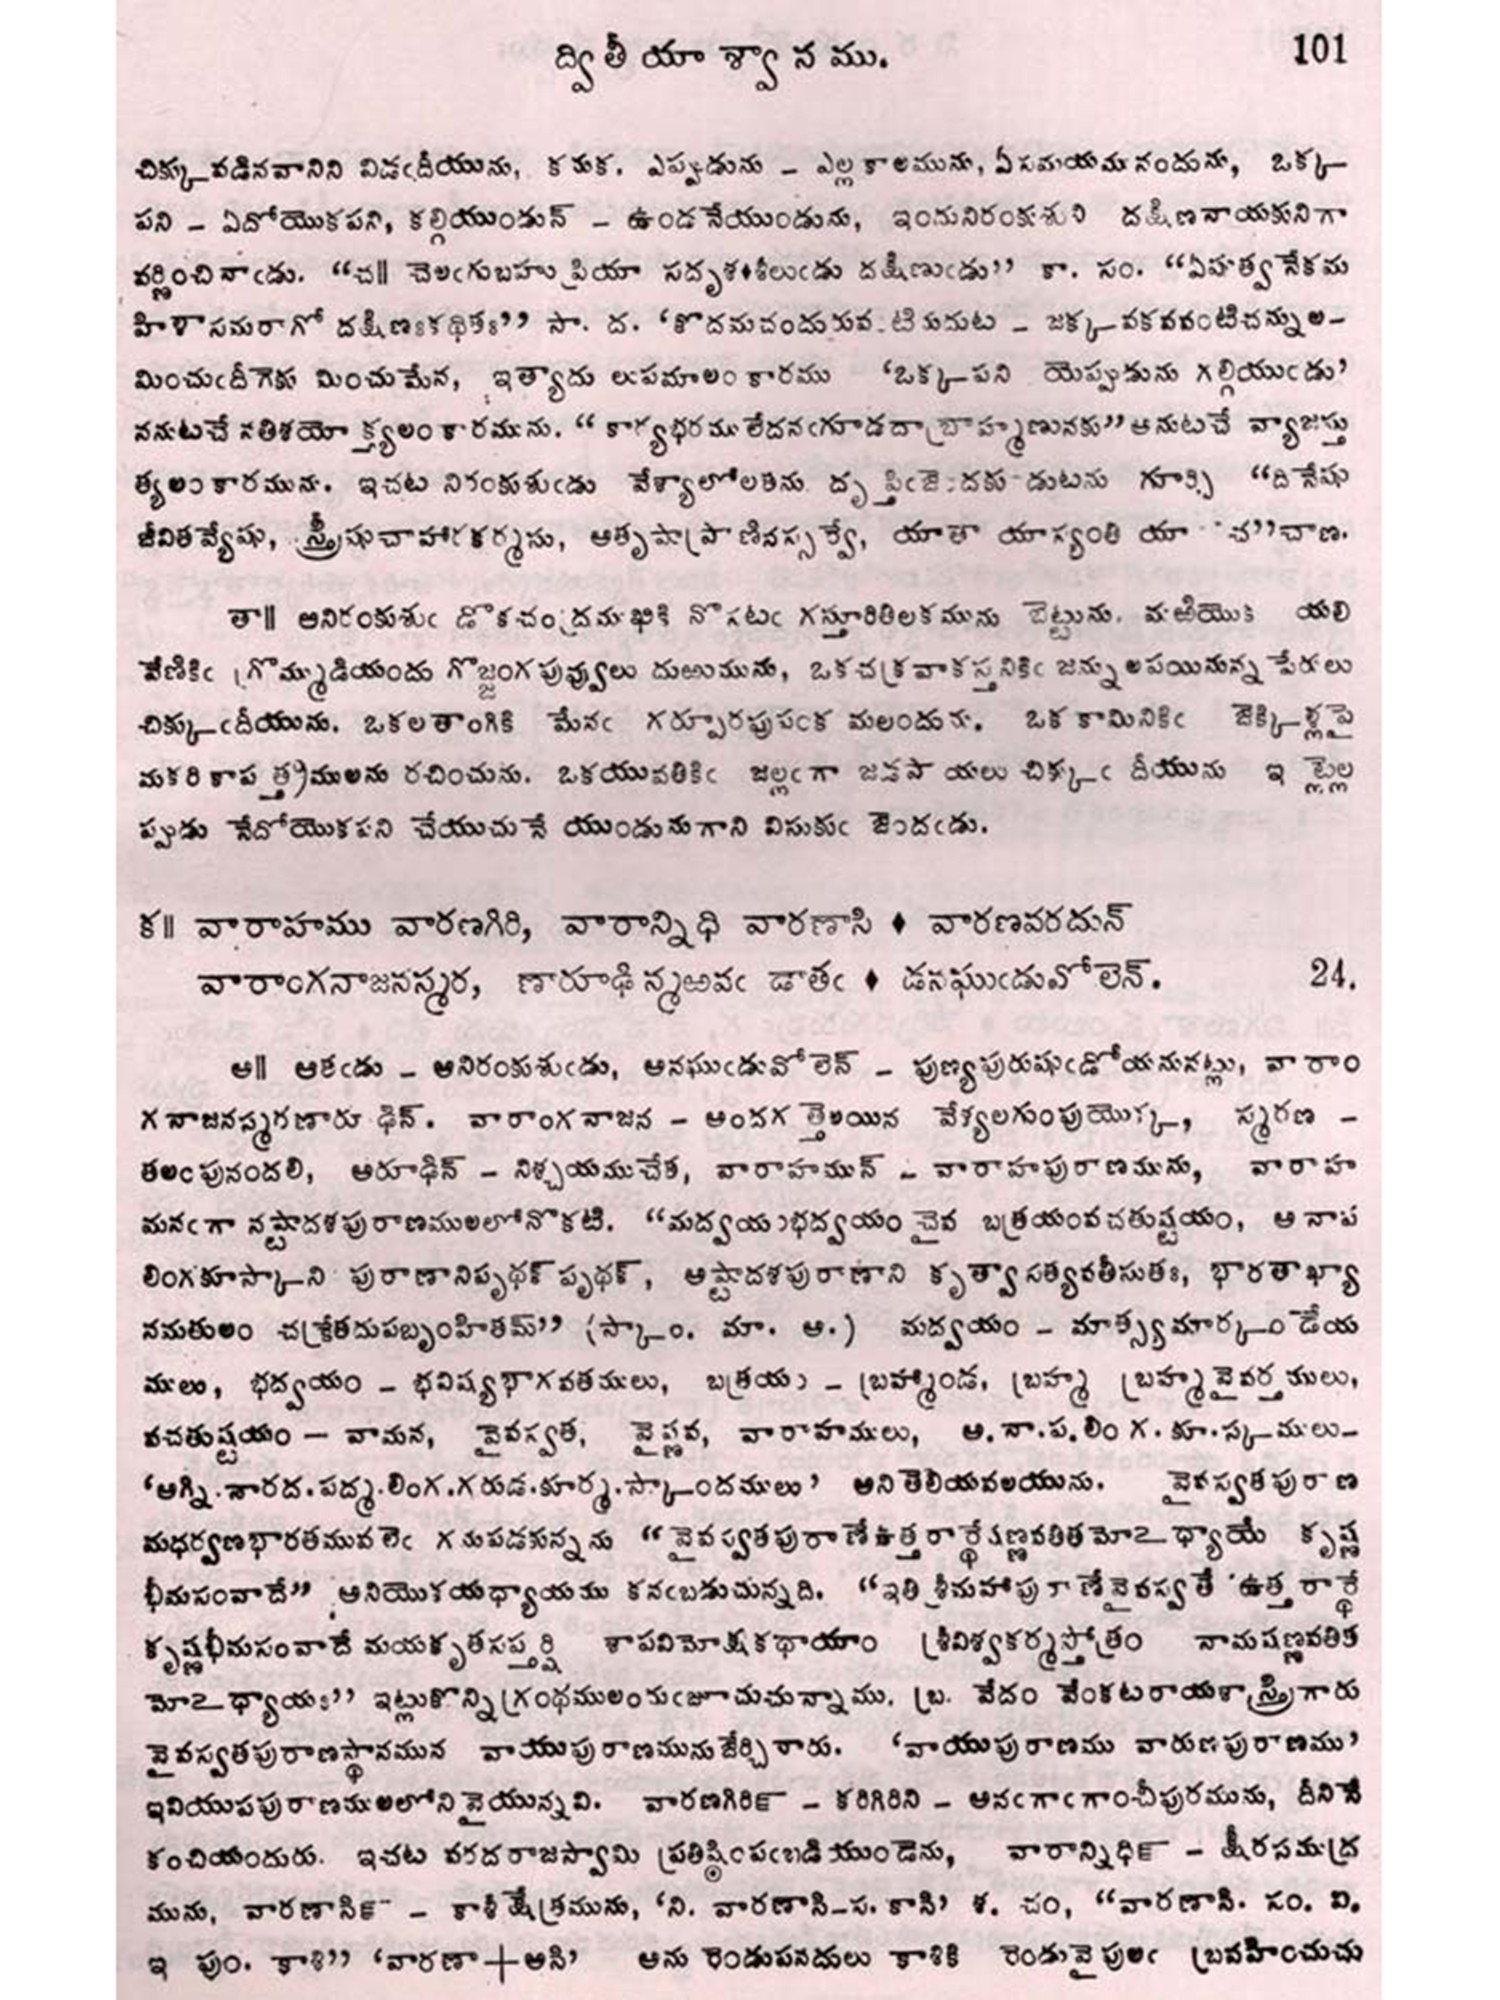 ద్వితీయాశ్వాసము. 101
చిక్కువడినవానిని విడఁదీయును, కనుక. ఎప్పుడును – ఎల్లకాలమును, ఏసమయమునందును, ఒక్క
పని – ఏదోయొకపని, కల్గియుండున్ – ఉండనేయుండును, ఇందునిరంకుశుని దక్షిణనాయకునిగా
వర్ణించినాఁడు. “చ॥ చెలఁగుబహుప్రియా సదృశ♦శీలుఁడు దక్షిణుఁడు” కా. సం. “ఏషుత్వనేకమ
హిళాసమరాగో దక్షిణఃకథితః” సా. ద. ‘కొదమచందురువ టినుదుట – జక్కవకవవంటిచన్నుల–
మించుఁదీగెకు మించుమేన, ఇత్యాదు లుపమాలంకారము ‘ఒక్కపని యెప్పుడును గల్గియుఁడు’
ననుటచే నతిశయోక్త్యలంకారమును. “కార్యభరములేదనఁగూడదాబ్రాహ్మణునకు” అనుటచే వ్యాజస్తు
త్యలంకారమును. ఇచట నిరంకుశుఁడు వేశ్యాలోలతను దృప్తిఁజెందకుండుటను గూర్చి “దినేషు
జీవితవ్యేషు, స్త్రీషుచాహారకర్మసు, అతృప్తాప్రాణినస్సర్వే, యాతా యాస్యంతి యా చ”చాణ.
తా॥ అనిరంకుశుఁ డొకచంద్రముఖికి నొసటఁ గస్తూరితిలకమును బెట్టును. మఱియొక యలి
వేణికిఁ గ్రొమ్ముడియందు గొజ్జంగపువ్వులు దుఱుమును, ఒకచక్రవాకస్తనికిఁ జన్నులపయినున్న పేరులు
చిక్కుఁదీయును. ఒకలతాంగికి మేనఁ గర్పూరపుపంక మలందును. ఒకకామినికిఁ జెక్కిళ్లపై
మకరికాపత్త్రములను రచించును. ఒకయువతికిఁ జల్లఁగా జడపాయలు చిక్కుఁ దీయును ఇ ట్లెల్ల
ప్పుడు నేదోయొకపని చేయుచునే యుండునుగాని విసుకుఁ జెందఁడు.
క॥ వారాహము వారణగిరి, వారాన్నిధి వారణాసి ♦ వారణవరదున్
వారాంగనాజనస్మర, ణారూఢి న్మఱవఁ డాతఁ ♦ డనఘుఁడువోలెన్. 24.
అ॥ ఆతఁడు – ఆనిరంకుశుఁడు, అనఘుఁడువోలెన్ – పుణ్యపురుషుఁడోయనునట్లు, వారాం
గనాజనస్మరణారూఢిన్. వారాంగనాజన – అందగత్తెలయిన వేశ్యలగుంపుయొక్క, స్మరణ –
తలఁపునందలి, ఆరూఢిన్ – నిశ్చయముచేత, వారాహమున్ – వారాహపురాణమును, వారాహ
మనఁగా నష్టాదశపురాణములలోనొకటి. “మద్వయంభద్వయం చైవ బత్రయంవచతుష్టయం, అ నాప
లింగకూస్కాని పురాణానిపృథక్ పృథక్, అష్టాదశపురాణాని కృత్వాసత్యవతీసుతః, భారతాఖ్యా
నమతులం చక్రేతదుపబృంహితమ్” (స్కాం. మా. అ.) మద్వయం – మాత్స్యమార్కండేయ
ములు, భద్వయం – భవిష్యభాగవతములు, బత్రయం – బ్రహ్మాండ, బ్రహ్మ బ్రహ్మవైవర్తములు,
వచతుష్టయం — వామన, వైవస్వత, వైష్ణవ, వారాహములు, అ.నా.ప.లింగ.కూ.స్కములు–
‘అగ్ని.నారద.పద్మ.లింగ.గరుడ.కూర్మ.స్కాందములు’ అనితెలియవలయును. వైవస్వతపురాణ
మధర్వణభారతమువలెఁ గనుపడకున్నను “వైవస్వతపురాణేఉత్తరార్థేషణ్ణవతితమోఽధ్యాయే కృష్ణ
భీమసంవాదే” అనియొకయధ్యాయము కనఁబడుచున్నది. “ఇతి శ్రీమహాపురాణేవైవస్వతే ఉత్తరార్థే
కృష్ణభీమసంవాదే మయకృతసప్తర్షి శాపవిమోక్షకథాయాం శ్రీవిశ్వకర్మస్తోత్రం నామషణ్ణవతిత
మోఽధ్యాయః” ఇట్లుకొన్నిగ్రంథములందుఁజూచుచున్నాము. బ్ర. వేదం వేంకటరాయశాస్త్రిగారు
వైవస్వతపురాణస్థానమున వాయుపురాణమునుజేర్చినారు. ‘వాయుపురాణము వారుణపురాణము’
ఇవియుపపురాణములలోనివైయున్నవి. వారణగిరిన్ – కరిగిరిని – అనఁగాఁగాంచీపురమును, దీనినే
కంచియందురు. ఇచట వరదరాజస్వామి ప్రతిష్ఠింపఁబడియుండెను, వారాన్నిధిన్ – క్షీరసముద్ర
మును, వారణాసిన్ – కాశీక్షేత్రమును, ‘ని. వారణాసి–స. కాసి’ శ. చం, “వారణాసి. సం. వి.
ఇ పుం. కాశి” ‘వారణా+అసి’ అను రెండుపనదులు కాశికి రెండువైపులఁ బ్రవహించుచు